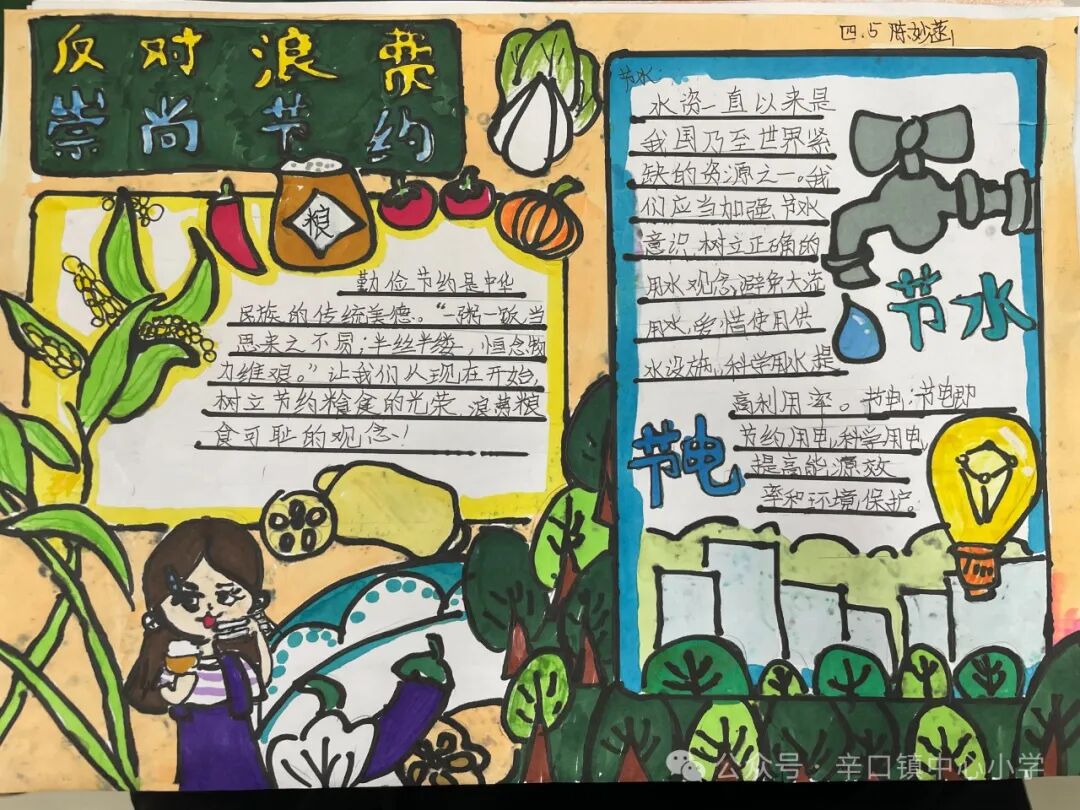 反对浪费
崇尚节约
四.5 陈妙菡
粮
勤俭节约是中华
民族的传统美德。“一粥一饭当
思来之不易；半丝半缕，恒念物
力维艰。”让我们从现在开始，
树立节约粮食的光荣，浪费粮
食可耻的观念！
节水：
水资一直以来是
我国乃至世界紧
缺的资源之一。我
们应当加强节水
意识，树立正确的
用水观念，避免大流
用水，爱惜使用供
水设施，科学用水，提
高利用率。节电：节电即
节约用电，科学用电
提高能源效
率和环境保护。
节水
节电
公众号·辛口镇中心小学